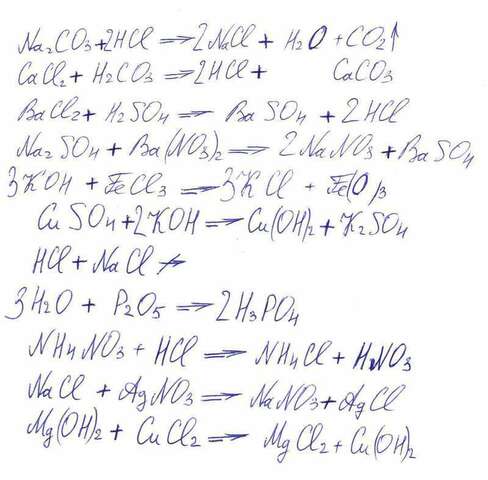 Na₂CO₃+2HCl ⇒ 2NaCl + H₂O + CO₂↑
CaCl₂ + H₂CO₃ ⇒ 2HCl + CaCO₃
BaCl₂ + H₂SO₄ ⇒ BaSO₄ + 2HCl
Na₂SO₄ + Ba(NO₃)₂ ⇒ 2NaNO₃ + BaSO₄
3KOH + FeCl₃ ⇒ 3KCl + Fe(O)₃
CuSO₄+2KOH ⇒ Cu(OH)₂+K₂SO₄
HCl + NaCl ⇏
3H₂O + P₂O₅ ⇒ 2H₃PO₄
NH₄NO₃ + HCl ⇒ NH₄Cl + HNO₃
NaCl + AgNO₃ ⇒ NaNO₃+AgCl
Mg(OH)₂ + CuCl₂ ⇒ MgCl₂ + Cu(OH)₂